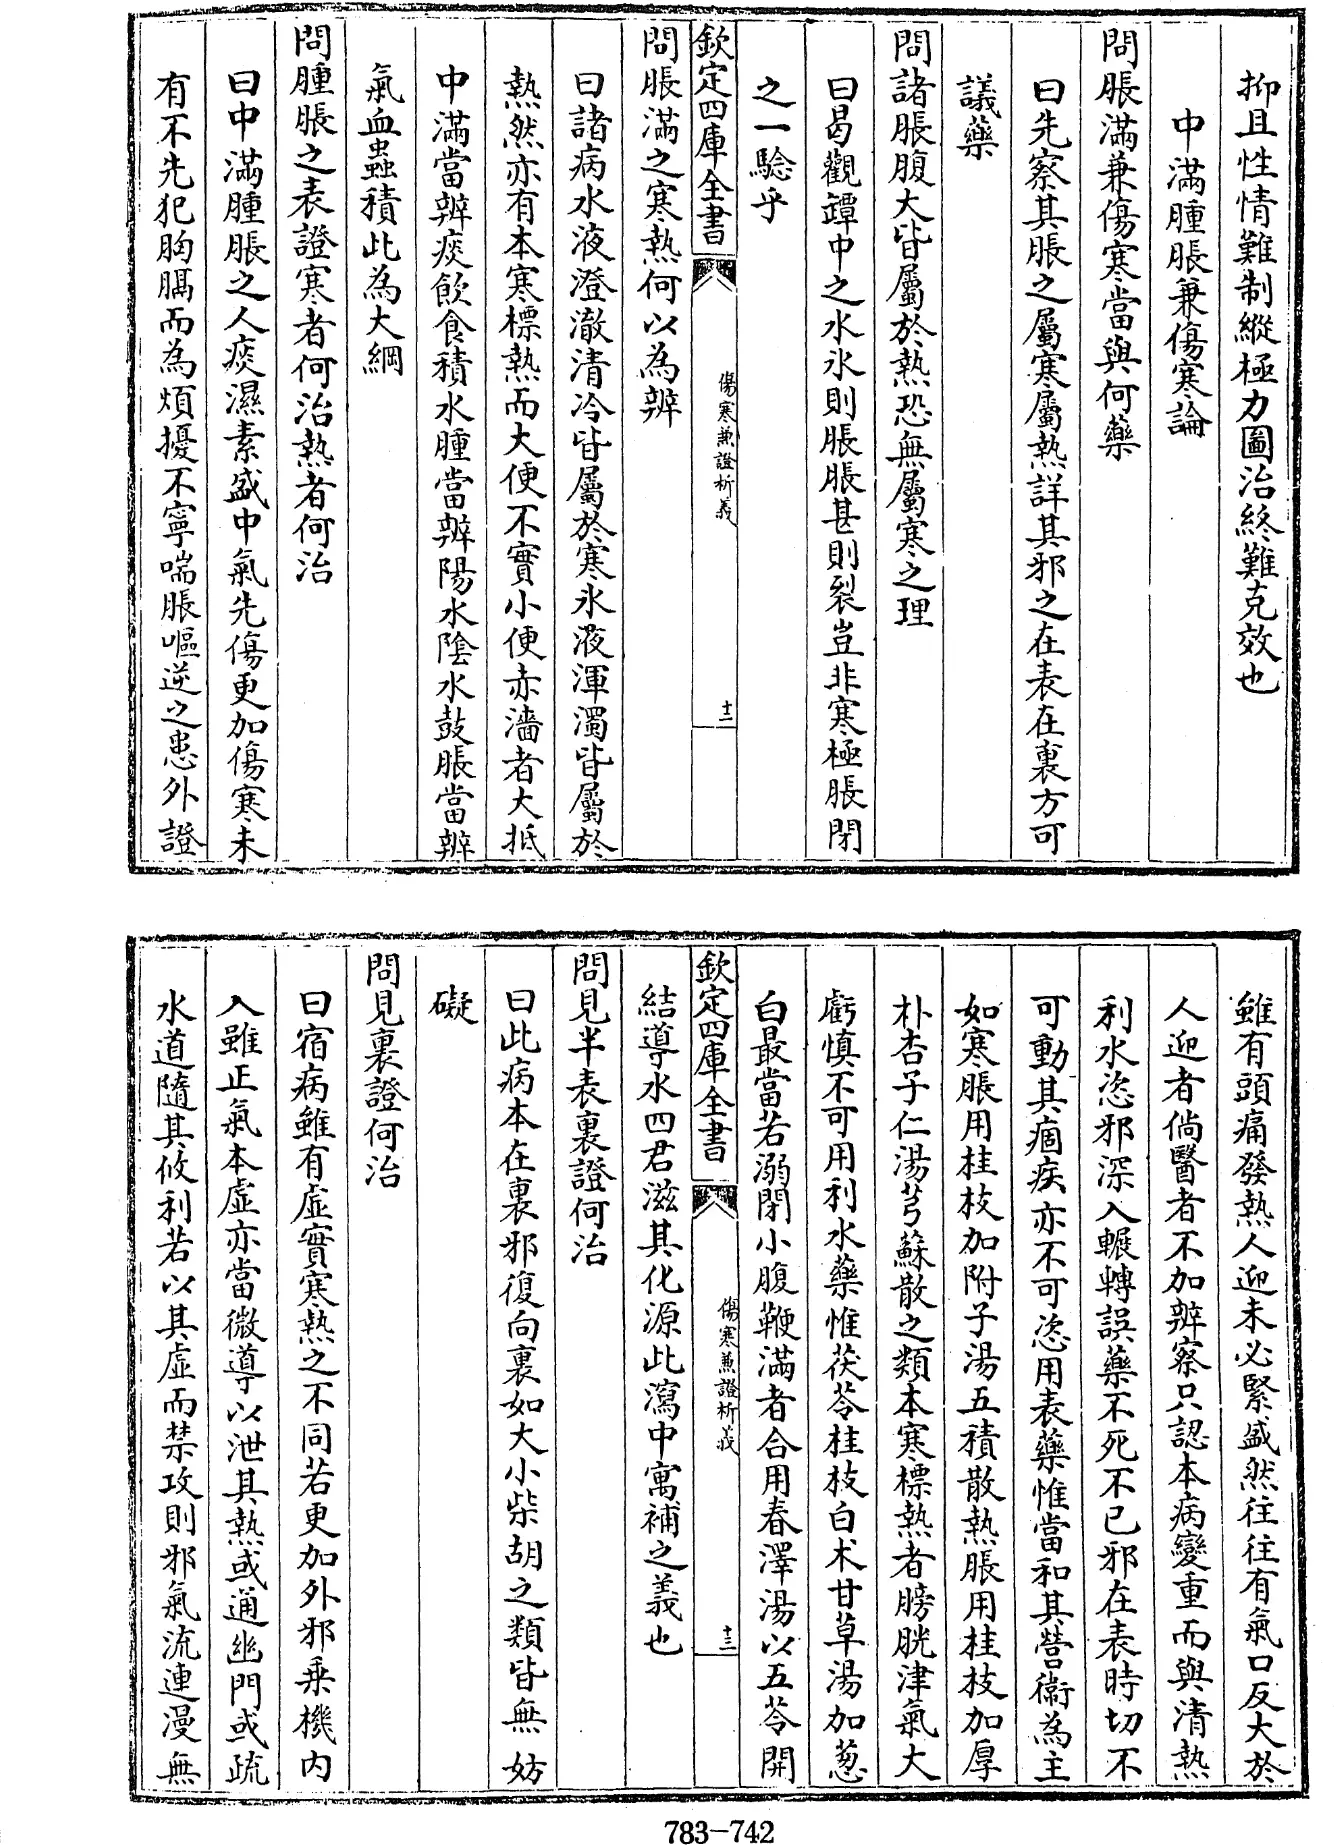 抑且性情難制縱極力圖治終難克效也
中滿腫脹兼傷寒論
問脹滿兼傷寒當與何藥
曰先察其脹之屬寒屬熱詳其邪之在表在裏方可
議藥
問諸脹腹大皆屬於熱恐無屬寒之理
曰曷觀罈中之水氷則脹脹甚則裂豈非寒極脹閉
之一驗乎
欽定四庫全書
傷寒兼證析義
十二
問脹滿之寒熱何以為辨
曰諸病水液澄澈清冷皆屬於寒水液渾濁皆屬於
熱然亦有本寒標熱而大便不實小便赤濇者大抵
中滿當辨痰飲食積水腫當辨陽水陰水鼓脹當辨
氣血蟲積此為大綱
問腫脹之表證寒者何治熱者何治
曰中滿腫脹之人痰濕素盛中氣先傷更加傷寒未
有不先犯胸膈而為煩擾不寧喘脹嘔逆之患外證
雖有頭痛發熱人迎未必緊盛然往往有氣口反大於
人迎者倘醫者不加辨察只認本病變重而與清熱
利水恣邪深入輾轉誤藥不死不已邪在表時切不
可動其痼疾亦不可恣用表藥惟當和其營衞為主
如寒脹用桂枝加附子湯五積散熱脹用桂枝加厚
朴杏子仁湯芎蘇散之類本寒標熱者膀胱津氣大
虧慎不可用利水藥惟茯苓桂枝白术甘草湯加葱
白最當若溺閉小腹鞕滿者合用春澤湯以五苓開
欽定四庫全書
傷寒兼證析義
十三
結導水四君滋其化源此瀉中寓補之義也
問見半表裏證何治
曰此病本在裏邪復向裏如大小柴胡之類皆無妨
礙
問見裏證何治
曰宿病雖有虛實寒熱之不同若更加外邪乘機内
入雖正氣本虛亦當微導以泄其熱或通幽門或疏
水道隨其攸利若以其虛而禁攻則邪氣流連漫無
783-742